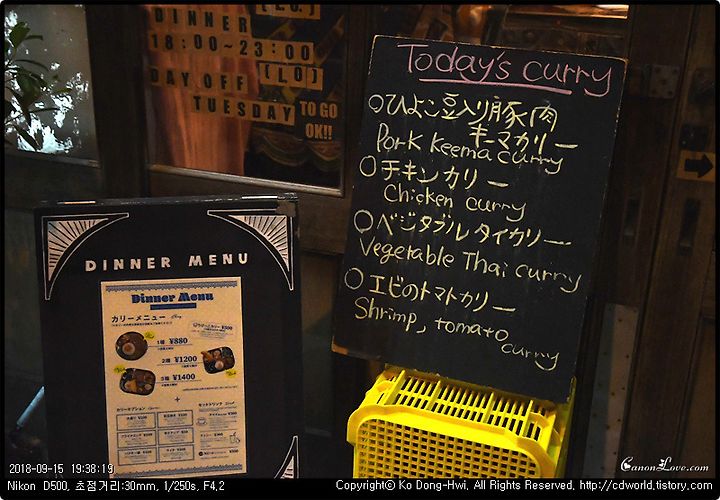 CanonLove.com
DINNER
(L.O.)
18:00~23:00
(L.O)
DAY OFF
TUESDAY
TO GO
OK!!
Today's curry
○ひよこ豆入り豚肉
キーマカリー
Pork keema curry
○チキンカリー
Chicken curry
○ベジタブルタイカリー
Vegetable Thai curry
○エビのトマトカリー
Shrimp, tomato
curry
DINNER MENU
Dinner Menu
カリーメニュー
1種 ¥880
2種 ¥1200
3種 ¥1400
+
カリーオプション
セットドリンク
2018-09-15 19:38:19
CanonLove.com
Nikon D500, 초점거리:30mm, 1/250s, F4,2
Copyright© Ko Dong-Hwi, All Rights Reserved. http://cdworld.tistory.com